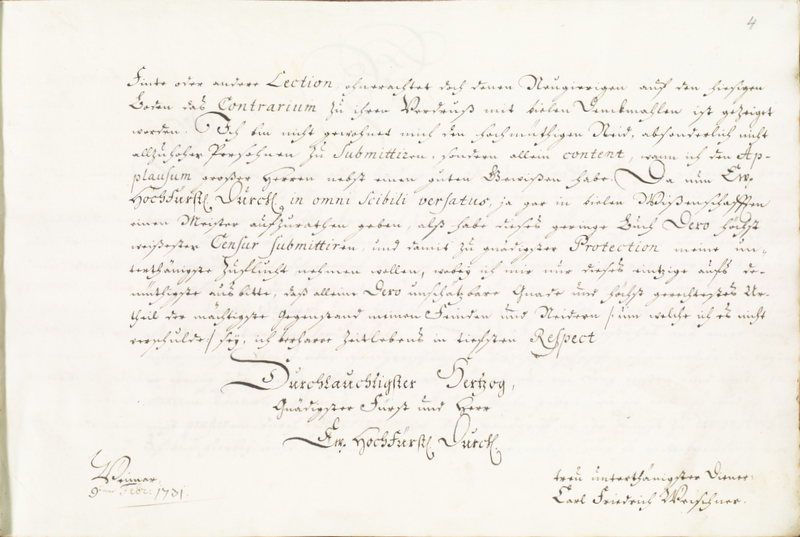 4
Finte oder andere Lection, ohnerachtet doch denen Neugierigen auf den hiesigen
Boden das Contrarium zu ihren Verdruß mit vielen Denckmahlen ist gezeiget
worden. Ich bin nicht gewohnet mich den hochmüthigen Neid, absonderlich nicht
allzuhoher Persohnen zu submittiren, sondern allein content, wann ich den Ap-
plausum großer Herren nebst einen guten Gewißen habe. Da nun Ew.
HochFürstl. Durchl. in omni scibili versatus, ja gar in vielen Wißenschafften
einen Meister aufzurathen geben, alß habe dieses geringe Buch Dero höchst
weißester Censur submittiren, und damit zu gnädigster Protection meine un-
terthänigste Zuflucht nehmen wollen, wobey ich mir nur dieses eintzige aufs de-
müthigste ausbitte, daß alleine Dero unschätzbare Gnade und höchst gerechtestes Ur-
theil der mächtigste Gegenstand meinen Feinden und Neidern /: um welche ich es nicht
verschulde :/ sey, ich verharre Zeitlebens in tiefsten Respect
Durchlauchtigster Hertzog,
Gnädigster Fürst und Herr
Ew. HochFürstl. Durchl.
Weimar
9 Febr. 1731.
treu unterthänigster Diener
Carl Friedrich Weischner.